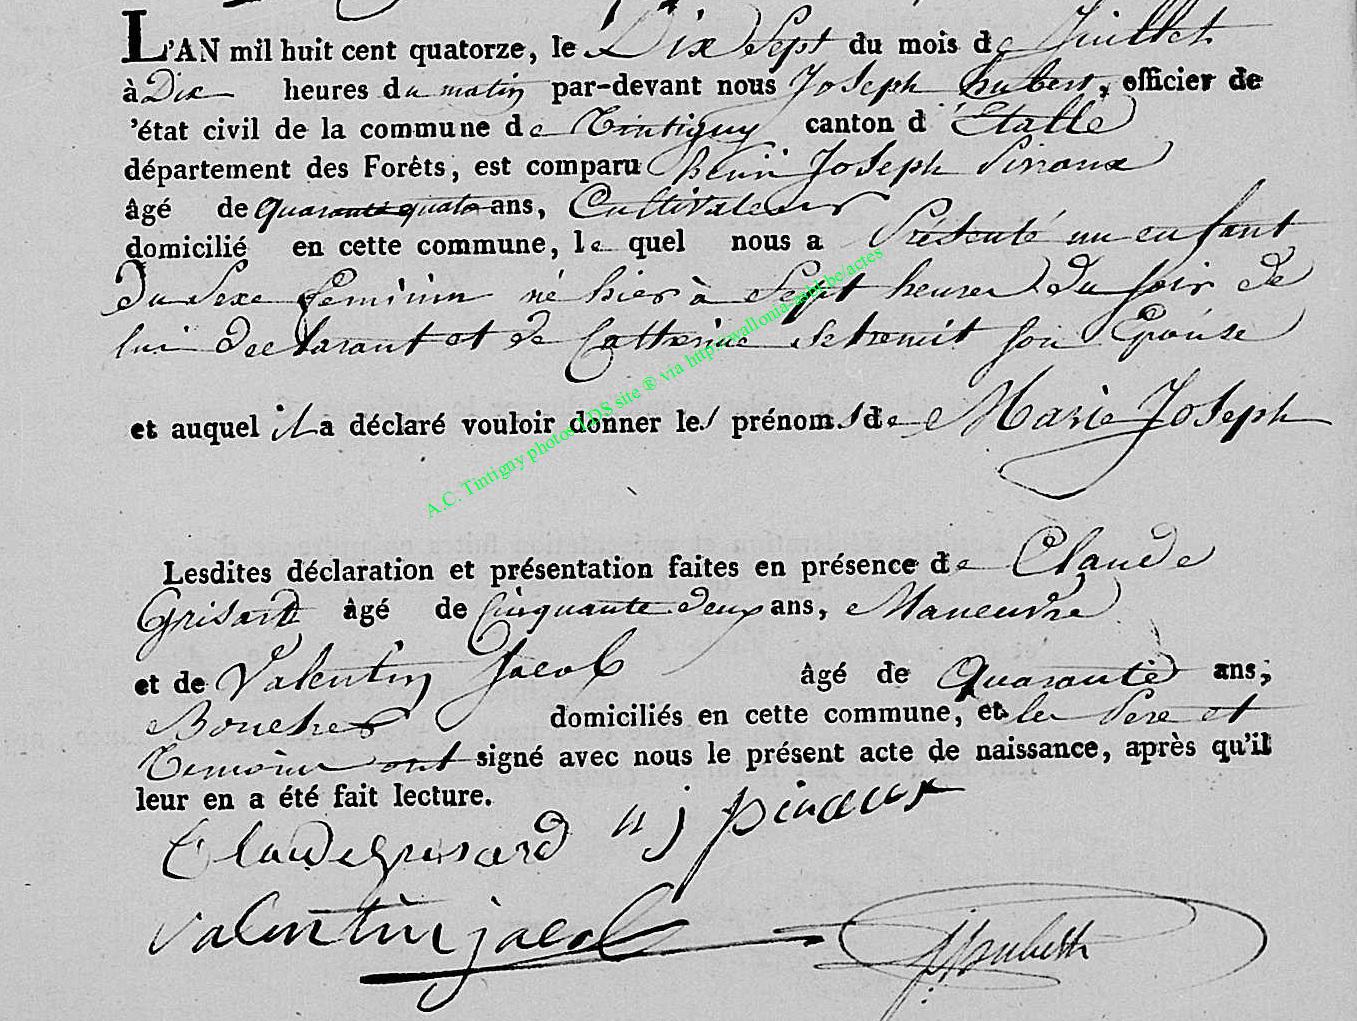 L'AN mil huit cent quatorze, le Dix Sept du mois de Juillet
à Dix heures du matin par-devant nous Joseph hubert, officier de
'état civil de la commune de Tintigny canton d'Etalle
département des Forêts, est comparu henri Joseph
âgé de quarante quatre ans, Cultivateur
domicilié en cette commune, le quel nous a Présenté un enfant
du Sexe féminin né hier à Sept heures du soir de
lui déclarant et de Catherine son Epouse
et auquel il a déclaré vouloir donner les prénoms de Marie Joseph
A.C. Tintigny photos LDS site ® via http://wallonia-asbl.be/actes
Lesdites déclaration et présentation faites en présence de Claude
Grisard âgé de Cinquante deux ans, Maneuvre
et de Valentin Jacob âgé de Quarante ans;
Boucher domiciliés en cette commune, et les Père et
Témoins ont signé avec nous le présent acte de naissance, après qu'il
leur en a été fait lecture.
Claude grisard
valentin jacob